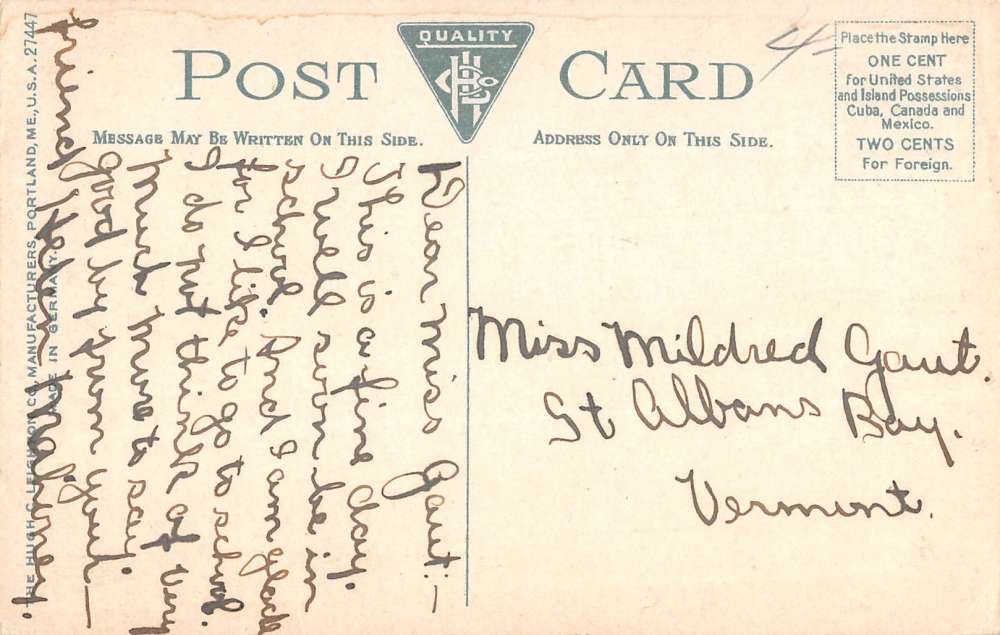 POST CARD
QUALITY
MESSAGE MAY BE WRITTEN ON THIS SIDE.
ADDRESS ONLY ON THIS SIDE.
Place the Stamp Here
ONE CENT
for United States
and Island Possessions
Cuba, Canada and
Mexico.
TWO CENTS
For Foreign.
4=
Dear Miss Gaut:—
This is a fine day.
I will soon be in
school. And I am glad
for I like to go to school.
I do not think of very
much more to say.
good by from your—
friend Helen
Miss Mildred Gaut.
St Albans Bay.
Vermont.
THE HUGH C. LEIGHTON CO., MANUFACTURERS, PORTLAND, ME., U.S.A. 27447
MADE IN GERMANY.